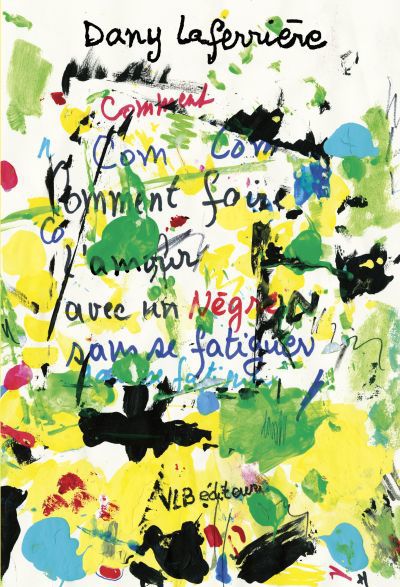 Dany Laferrière
Comment
Com Com
Comment faire
Co
l'amour
avec un Nègre
sans se fatiguer
VLB éditeur